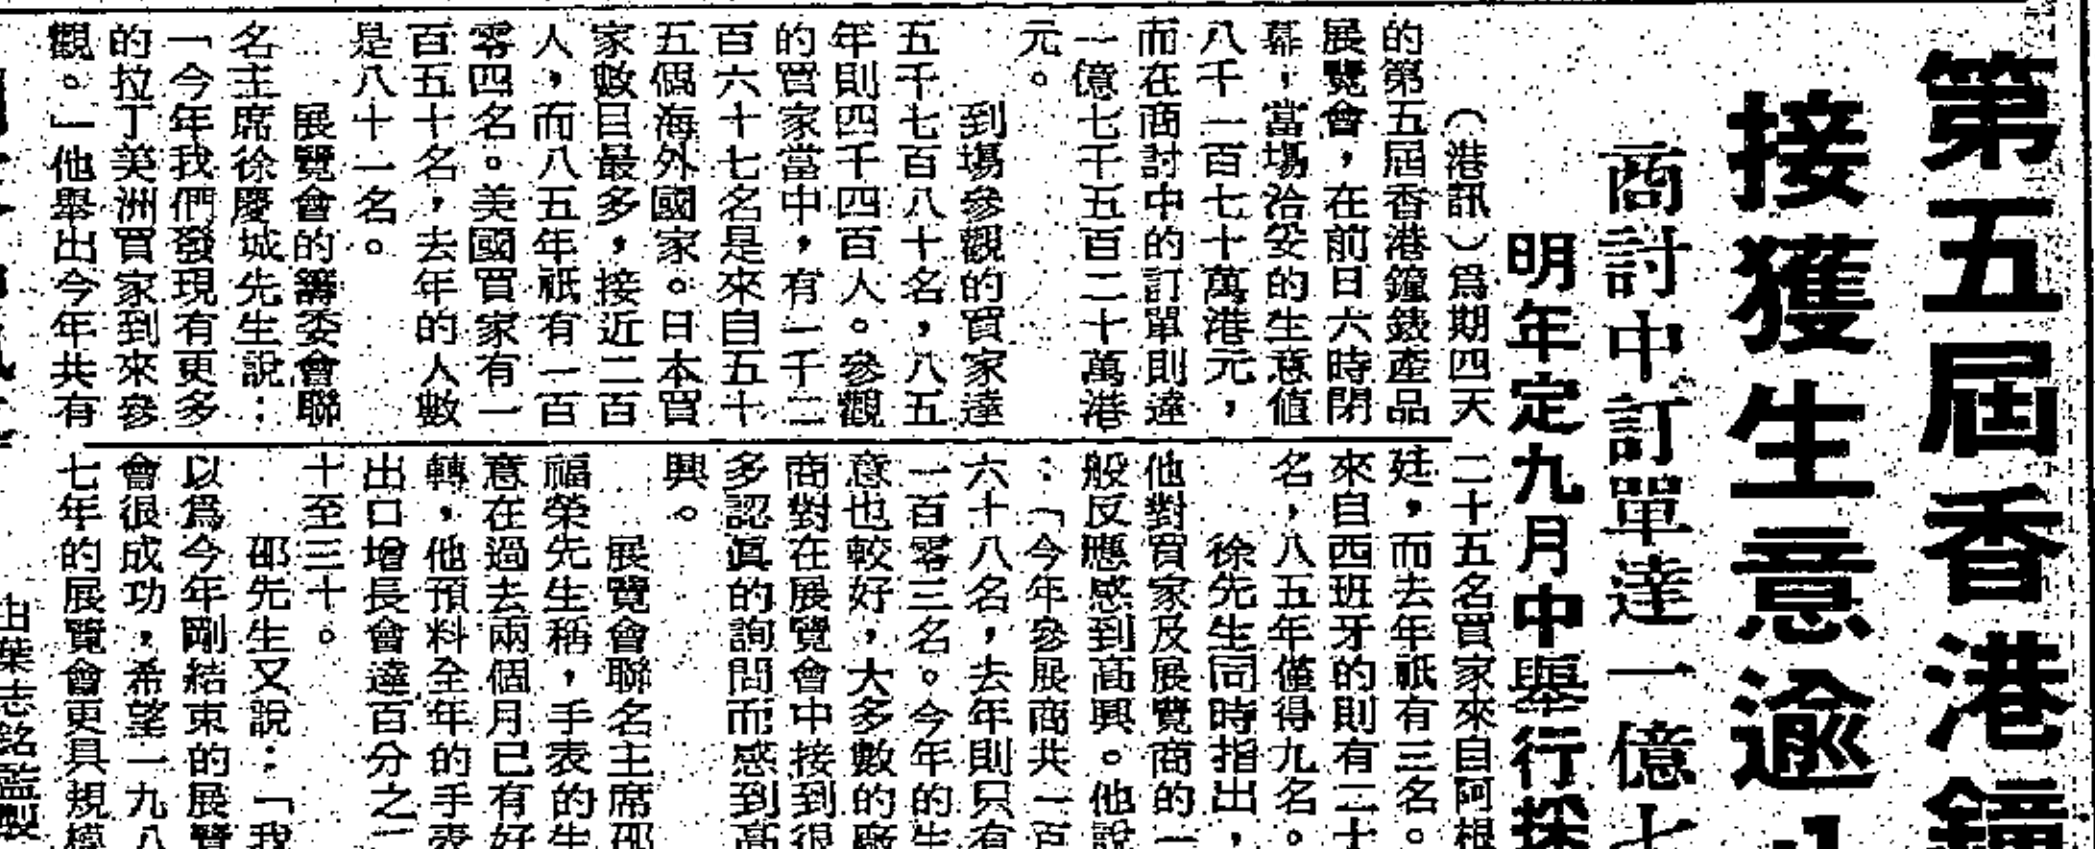 第五屆香港鐘
接獲生意逾
商討中訂單達一億七
明年定九月中舉行
（港訊）爲期四天
的第五屆香港鐘錶產品
展覽會，在前日六時閉
幕，當場洽妥的生意值
八千一百七十萬港元，
而在商討中的訂單則達
一億七千五百二十萬港
元。
到場參觀的買家達
五千七百八十名，八五
年則四千四百人。參觀
的買家當中，有一千二
百六十七名是來自五十
五個海外國家。日本買
家數目最多，接近二百
人，而八五年祇有一百
零四名。美國買家有一
百五十名，去年的人數
是八十一名。
展覽會的籌委會聯
名主席徐慶城先生說：
「今年我們發現有更多
的拉丁美洲買家到來參
觀。」他舉出今年共有
二十五名買家來自阿根
廷，而去年祇有三名。
來自西班牙的則有二十
名，八五年僅得九名。
徐先生同時指出，
他對買家及展覽商的一
般反應感到高興。他說
：「今年參展商共一百
六十八名，去年則只有
一百零三名。今年的生
意也較好，大多數的廠
商對在展覽會中接到很
多認眞的詢問而感到高
興。
展覽會聯名主席邵
福榮先生稱，手表的生
意在過去兩個月已有好
轉，他預料全年的手表
出口增長會達百分之二
十至三十。
邵先生又說：「我
以爲今年剛結束的展覽
會很成功，希望一九八
七年的展覽會更具規模
由葉志銘監製